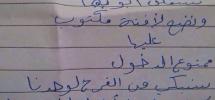 ونضع لافتة مكتوب
عليها
ممنوع الدخول
سنبكي من الفرح لوحدنا